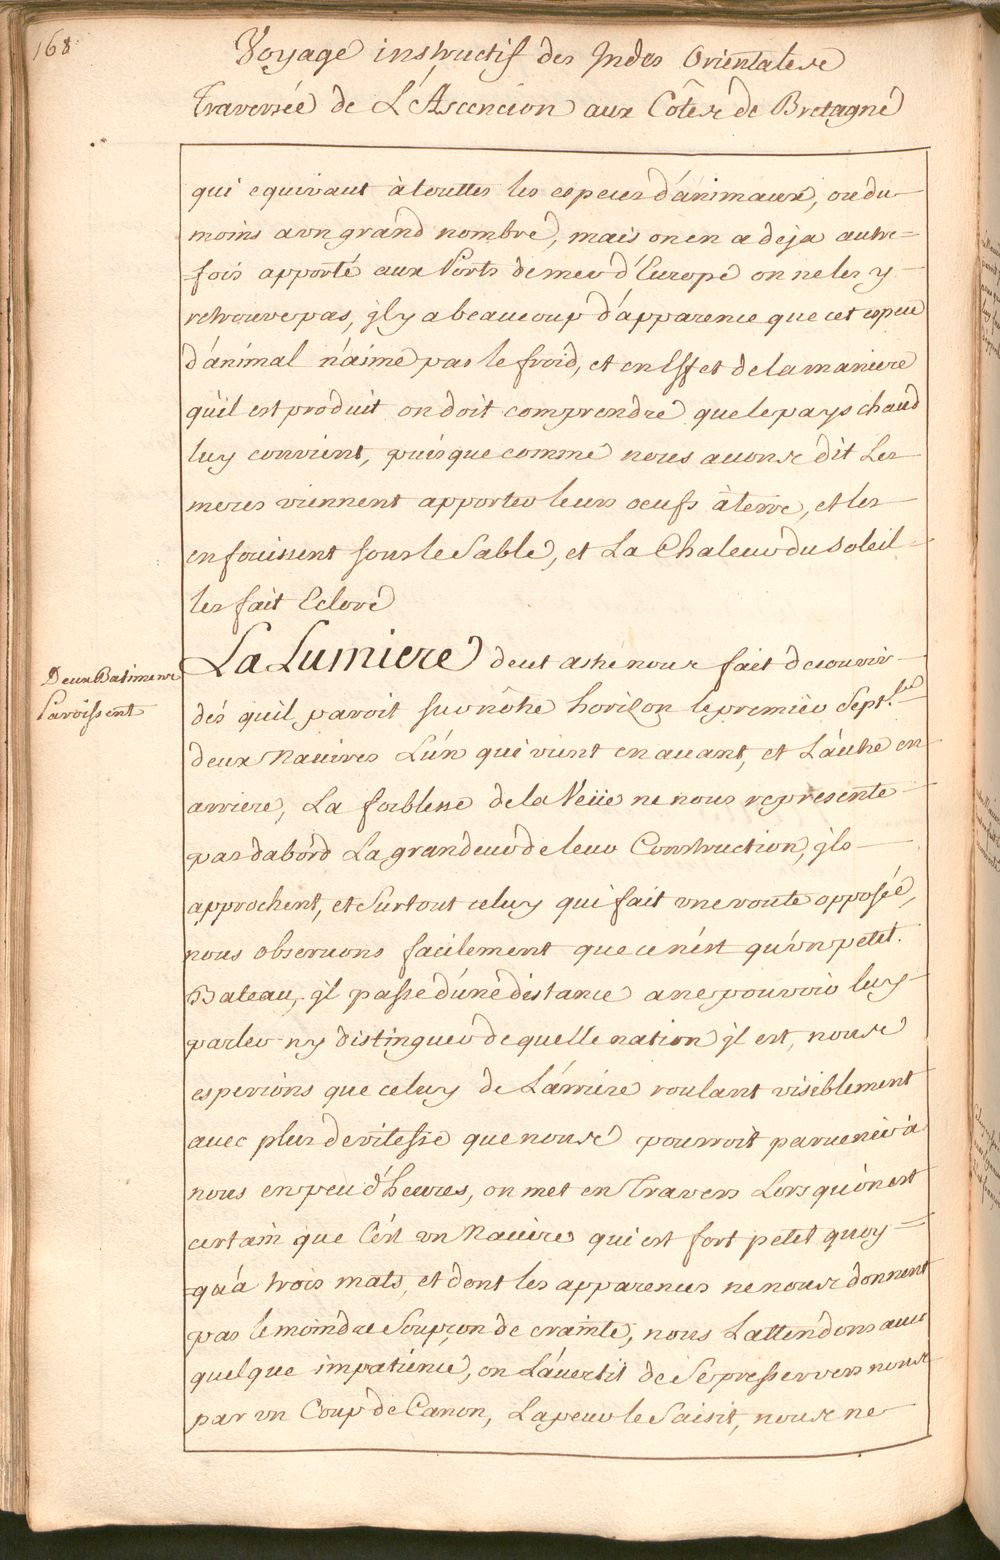 168
Voyage instructif des Indes Orientales
Traversée de L'Ascencion aux Côtes de Bretagne
qui equivaut à touttes les especes d'animaux, ou du
moins a un grand nombre, mais on en a deja autre=
=fois apporté aux Ports de mer d'Europe on ne les y
retrouve pas, jl y a beaucoup d'apparence que cet espece
d'animal n'aime pas le froid, et en Effet de la maniere
qu'il est produit on doit comprendre que le pays chaud
luy convient, puisque comme nous avons dit Les
meres viennent apporter leurs oeufs à terre, et les
enfouissent sous le Sable, et La Chaleur du Soleil
les fait Eclore
La Lumiere de cet astre nous fait decouvrir
Deux Batimens
Paroissent
dés qu'il paroit sur nôtre horizon le premier Sept.bre
deux Navires L'un qui vient en avant, et L'autre en
arriere, La foiblesse de la Veüe ne nous represente
pas dabord La grandeur de leur Construction, jls
approchent, et Surtout celuy qui fait une route opposée,
nous observons facilement que ce n'est qu'un petit
Bateau, jl passe d'une distance a ne pouvoir luy
parler ny distinguer de quelle nation jl est, nous
esperions que celuy de L'arriere roulant visiblement
avec plus de vitesse que nous pourroit parvenir à
nous en peu d'heures, on met en Travers Lors qu'on est
certain que C'est un Navire qui est fort petit quoy=
=qu'a trois mats, et dont les apparences ne nous donnent
pas le moindre Soupçon de crainte, nous L'attendons avec
quelque impatience, on L'avertit de Se presser vers nous
par un Coup de Canon, La peur le Saisit, nous ne